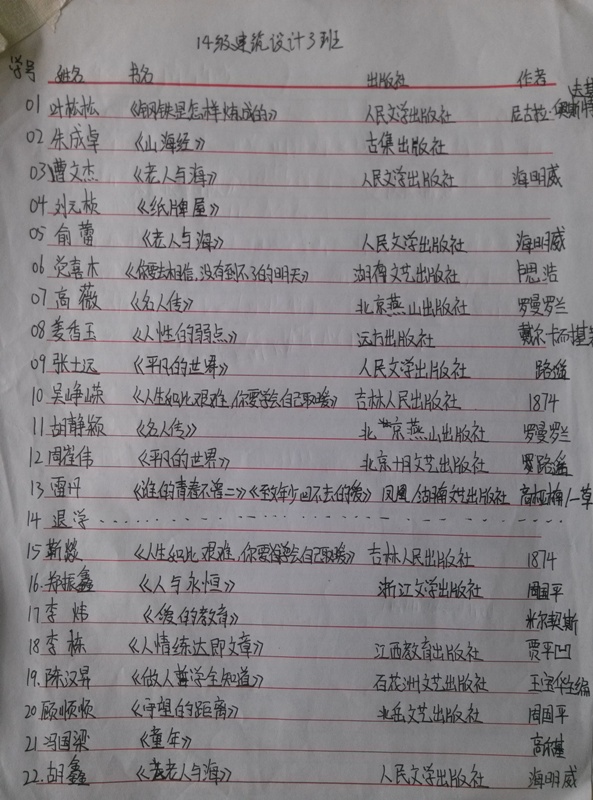 14级建筑设计3班
学号 姓名 书名 出版社 作者
01 叶松松 《钢铁是怎样炼成的》 人民文学出版社 尼古拉·奥斯特
02 朱成卓 《山海经》 古集出版社
03 曹文杰 《老人与海》 人民文学出版社 海明威
04 刘元桢 《纸牌屋》
05 俞蕾 《老人与海》 人民文学出版社 海明威
06 党喜木 《你要去相信,没有到不了的明天》 湖南文艺出版社 卢思浩
07 高薇 《名人传》 北京燕山出版社 罗曼罗兰
08 姜香玉 《人性的弱点》 远方出版社 戴尔卡而基
09 张士远 《平凡的世界》 人民文学出版社 路遥
10 吴峥嵘 《人生如此艰难,你要学会自己取暖》 吉林人民出版社 1874
11 胡静颖 《名人传》 北京燕山出版社 罗曼罗兰
12 周崔伟 《平凡的世界》 北京十月文艺出版社 路遥
13 雷丹 《谁的青春不曾二》《致年少回不去的爱》 凤凰/湖南文艺出版社 /一草
14 退学
15 靳 《人生如此艰难,你要学会自己取暖》 吉林人民出版社 1874
16. 郑振鑫 《人与永恒》 浙江文学出版社 周国平
17 李炜 《爱的教育》 米尔契斯
18 李栋 《人情练达即文章》 江西教育出版社 贾平凹
19. 陈汉昇 《做人哲学全知道》 百花洲文艺出版社 王宝华主编
20 顾顺顺 《守望的距离》 北岳文艺出版社 周国平
21 冯国梁 《童年》 高尔基
22. 胡鑫 《老人与海》 人民文学出版社 海明威